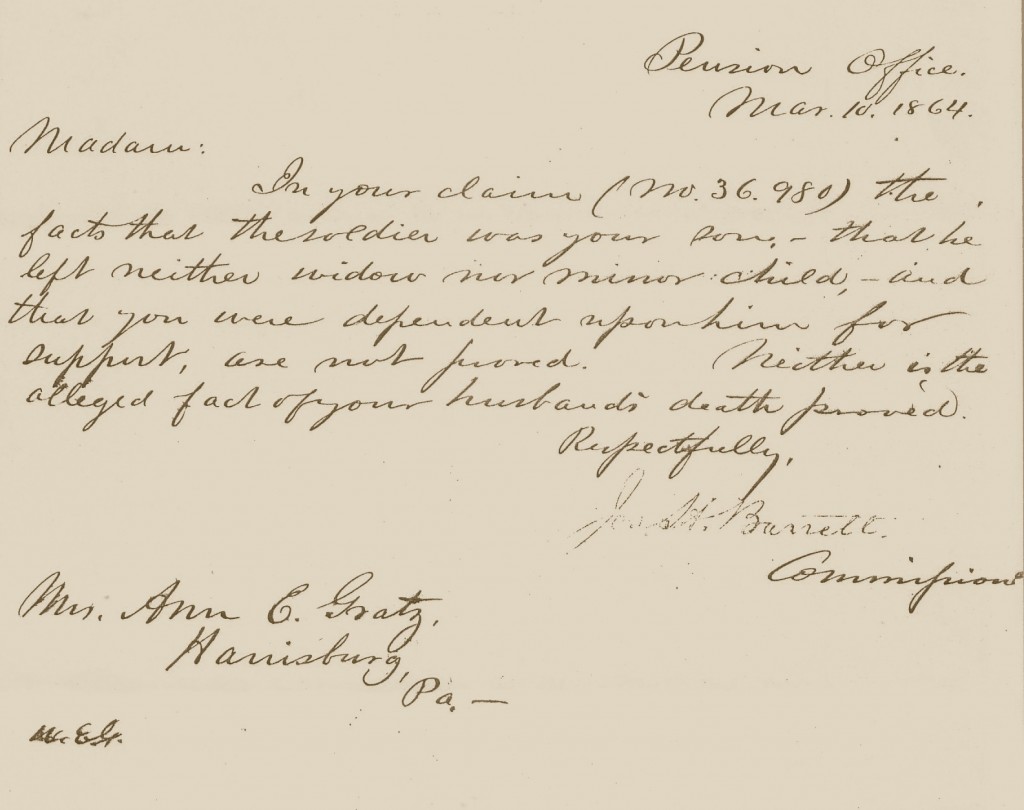 Pension Office.
Mar. 10. 1864.
Madam:
In your claim (No. 36.980) the
facts that the soldier was your son, - that he
left neither widow nor minor child, - and
that you were dependent upon him for
support, are not proved. Neither is the
alleged fact of your husband's death proved.
Respectfully,
Jos. H. Barrett.
Commissione
Mrs. Ann E. Gratz,
Harrisburg,
Pa. —